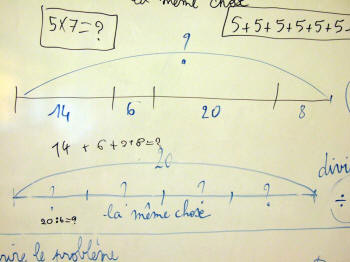 la même chose
5×7=?
5+5+5+5+5+5
?
14 6 20 8
14 + 6 + 20+8=?
20
? ? ? ?
20:4=?
la même chose
divi
÷
rire le problème